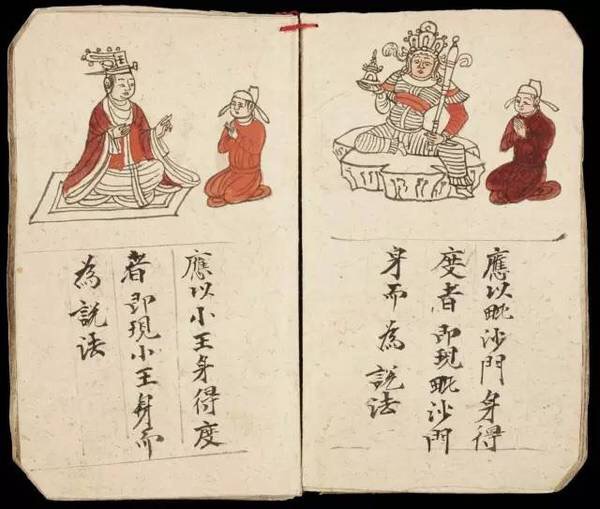 應以毗沙門身得
度者即現毗沙門
身而為說法
應以小王身得度
者即現小王身而
為說法